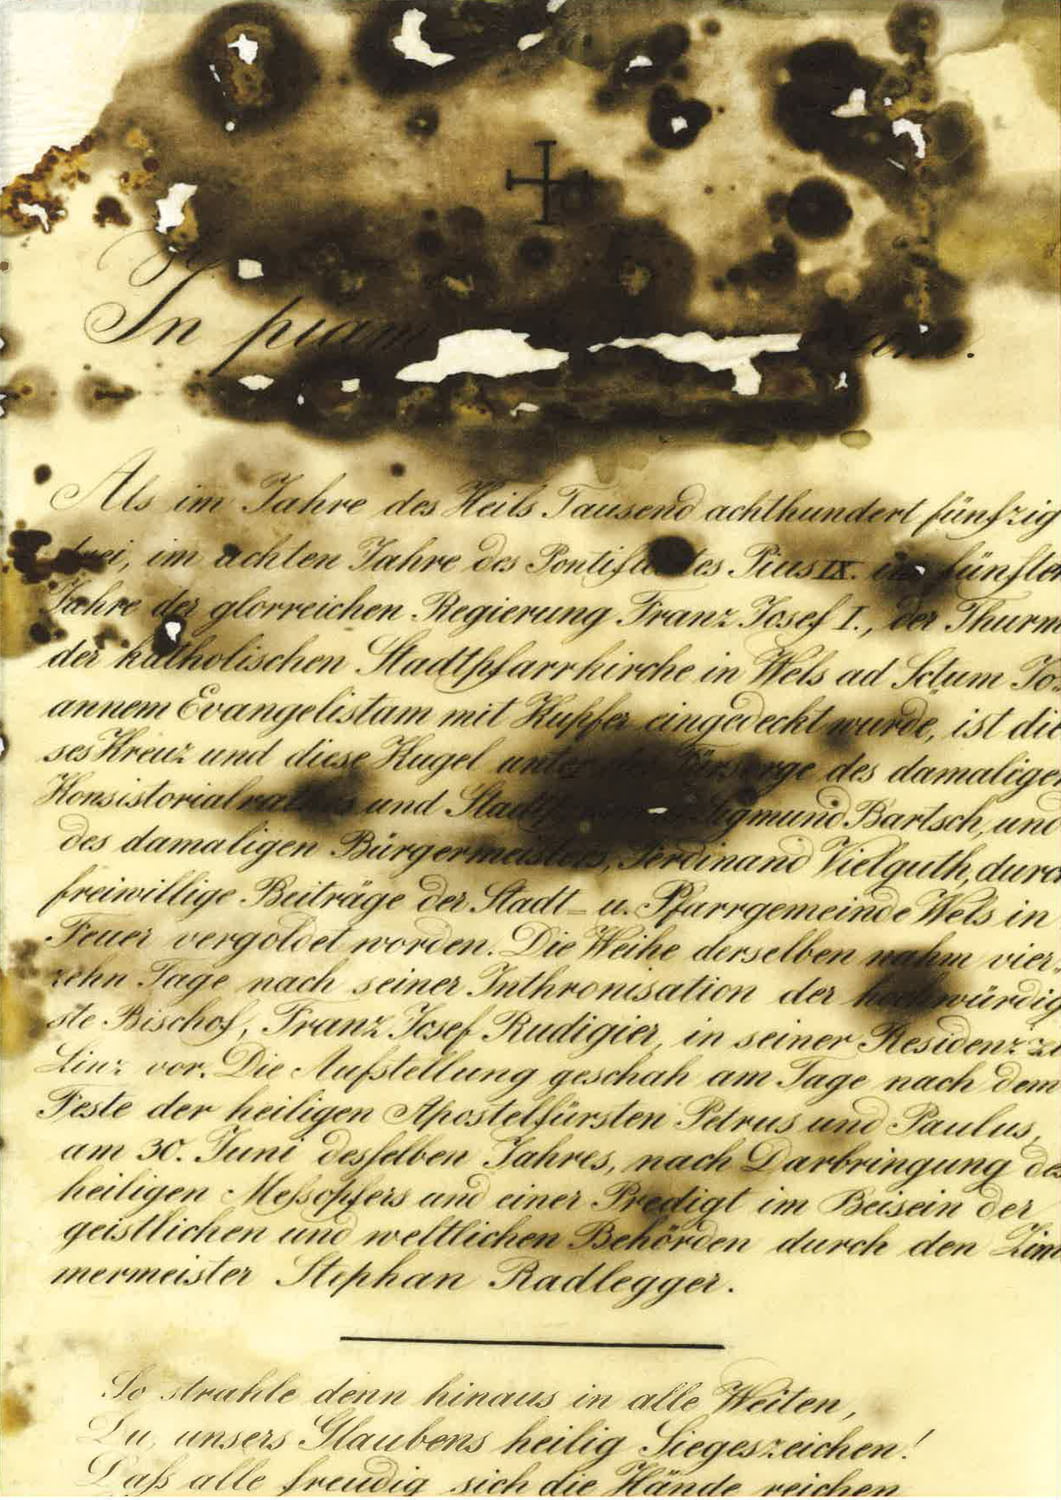 In piam
Als im Jahre des Heils Tausend achthundert fünfzig
drei, im achten Jahre des Pontifikates Pius IX. im fünften
Jahre der glorreichen Regierung Franz Josef I., der Thurm
der katholischen Stadtpfarrkirche in Wels ad Sctum Jo-
annem Evangelistam mit Kupfer eingedeckt wurde, ist die
ses Kreuz und diese Kugel unter der Fürsorge des damaligen
Konsistorialrathes und Sigmund Bartsch, und
des damaligen Bürgermeisters, Ferdinand Vielguth, durch
freiwillige Beiträge der Stadt- u. Pfarrgemeinde Wels in
Feuer vergoldet worden. Die Weihe derselben nahm vier-
zehn Tage nach seiner Inthronisation der hochwürdig
ste Bischof, Franz Josef Rudigier, in seiner Residenz zu
Linz vor. Die Aufstellung geschah am Tage nach dem
Feste der heiligen Apostelfürsten Petrus und Paulus,
am 30. Juni desselben Jahres, nach Darbringung des
heiligen Meßopfers und einer Predigt im Beisein der
geistlichen und weltlichen Behörden durch den Zim
mermeister Stephan Radlegger.
So strahle denn hinaus in alle Weiten,
Du, unsers Glaubens heilig Siegeszeichen!
Daß alle freudig sich die Hände reichen